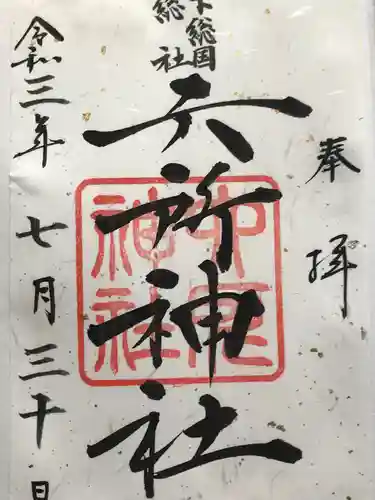 奉拝
下総国
総社
六所神社
六所神社
令和三年七月三十日